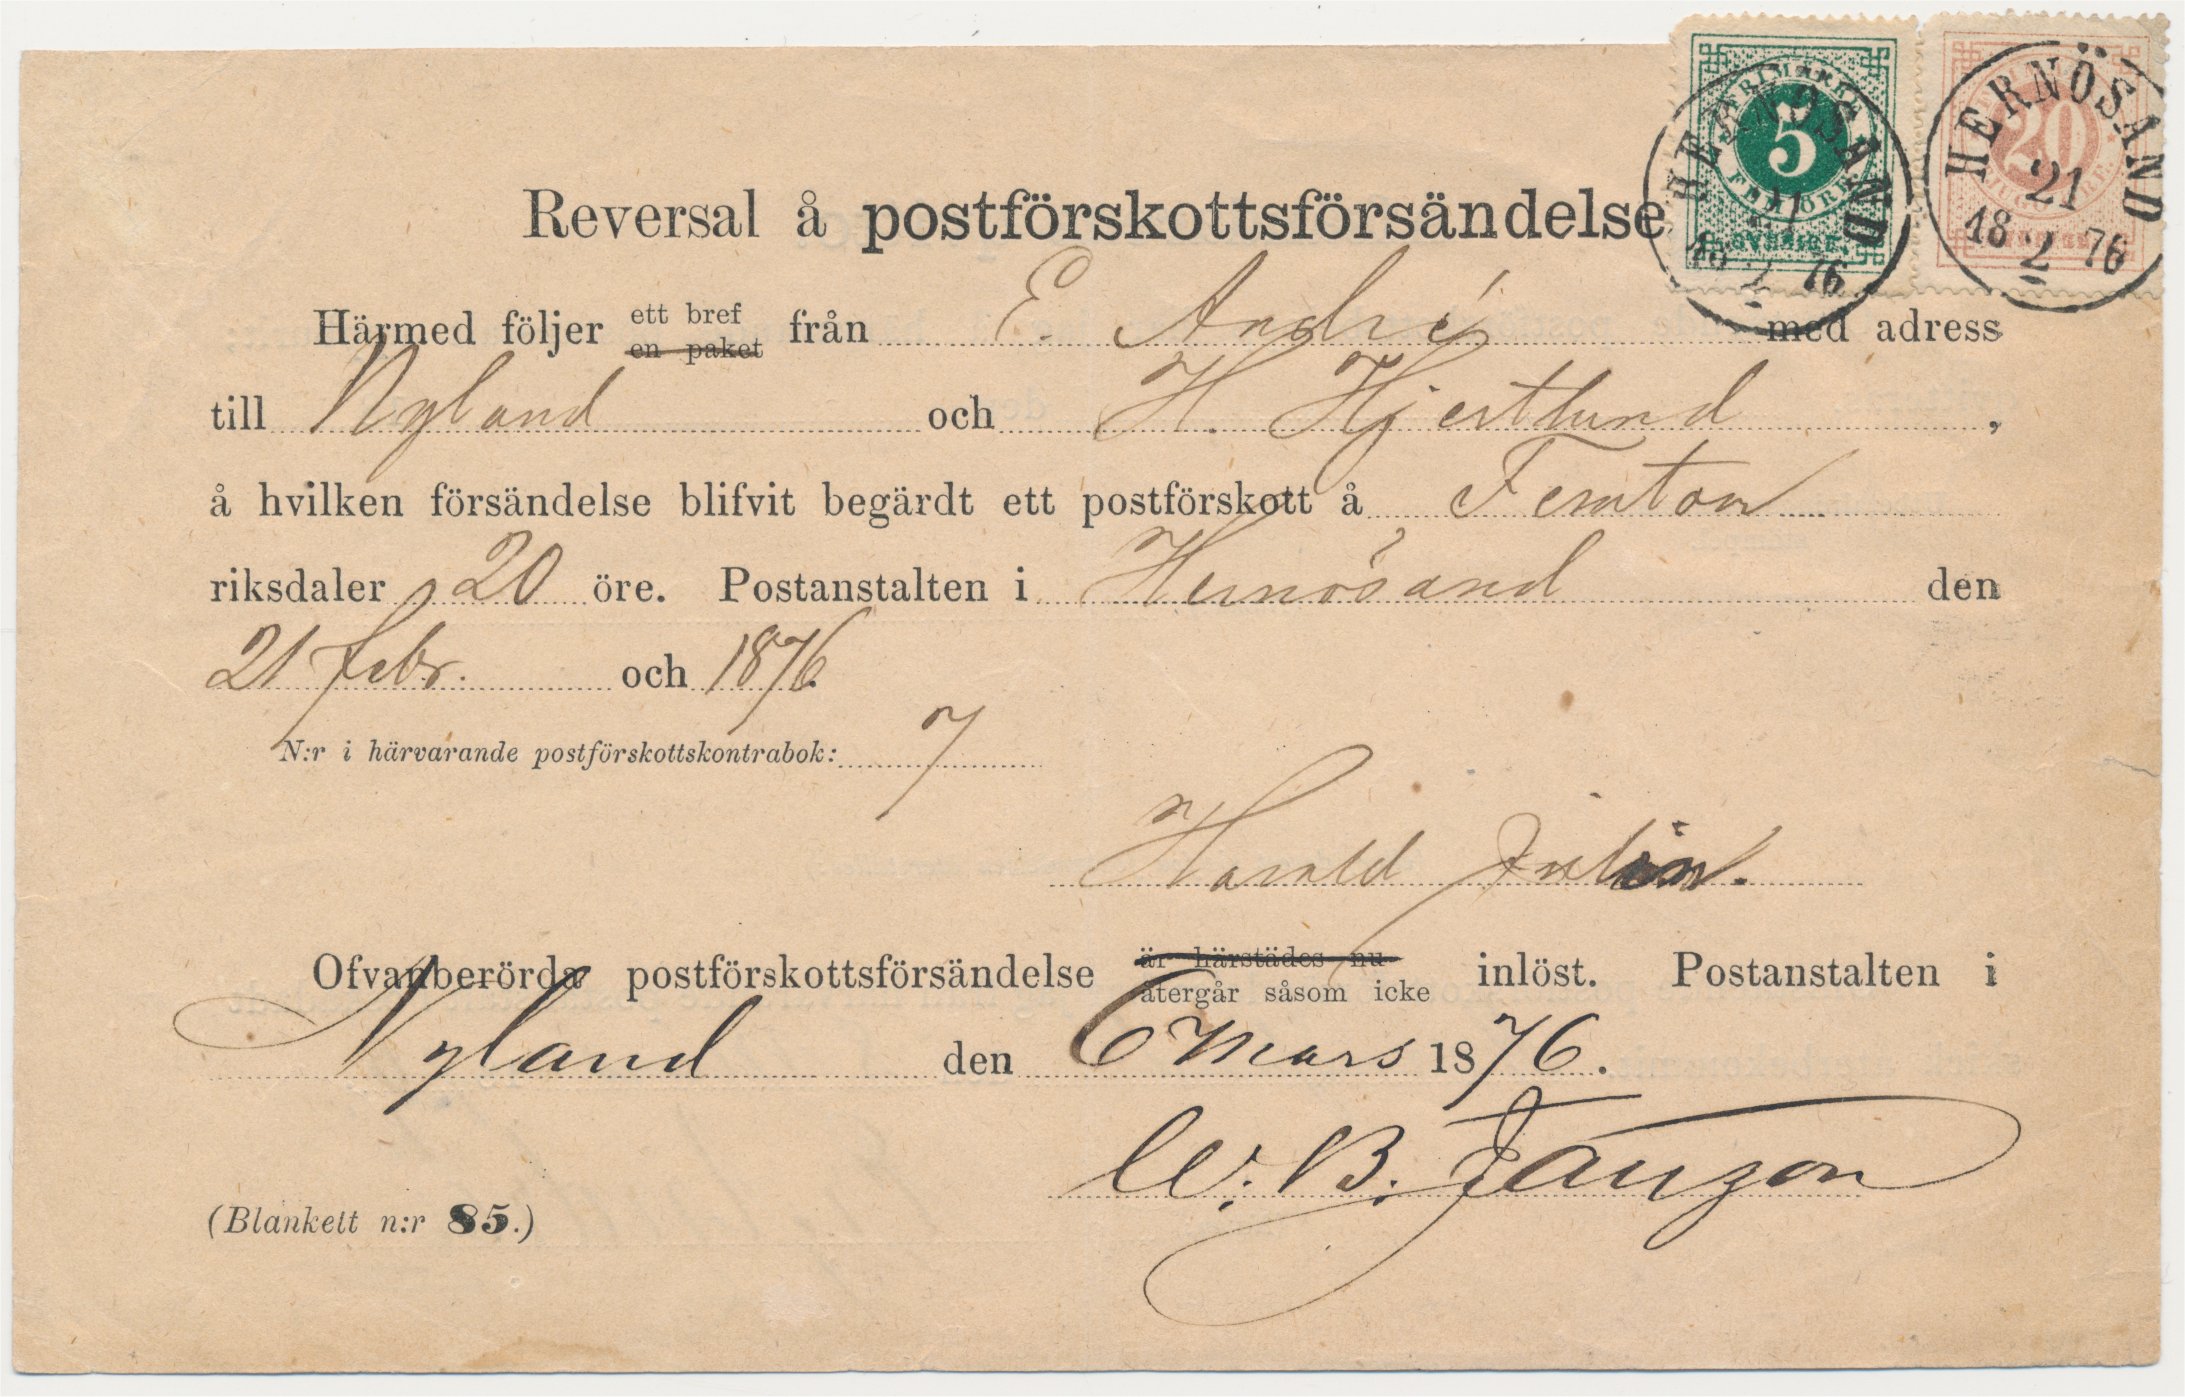 FRIMÄRKE
5
FEM ÖRE
SVERIGE.
20
HERNÖSAND
21
18 2 76
HERNÖSAND
21
18 2 76
Reversal å postförskottsförsändelse
Härmed följer ett bref från E. André med adress
en paket
till Nyland och H. Hjertlund,
å hvilken försändelse blifvit begärdt ett postförskott å Femton
riksdaler 20 öre. Postanstalten i Hernösand den
21 febr. och 1876.
N:r i härvarande postförskottskontrabok: 7
Harald Julin.
Ofvanberörda postförskottsförsändelse är härstädes nu inlöst. Postanstalten i
återgår såsom icke
Nyland den 6 Mars 1876.
W. B.
(Blankett n:r 85.)